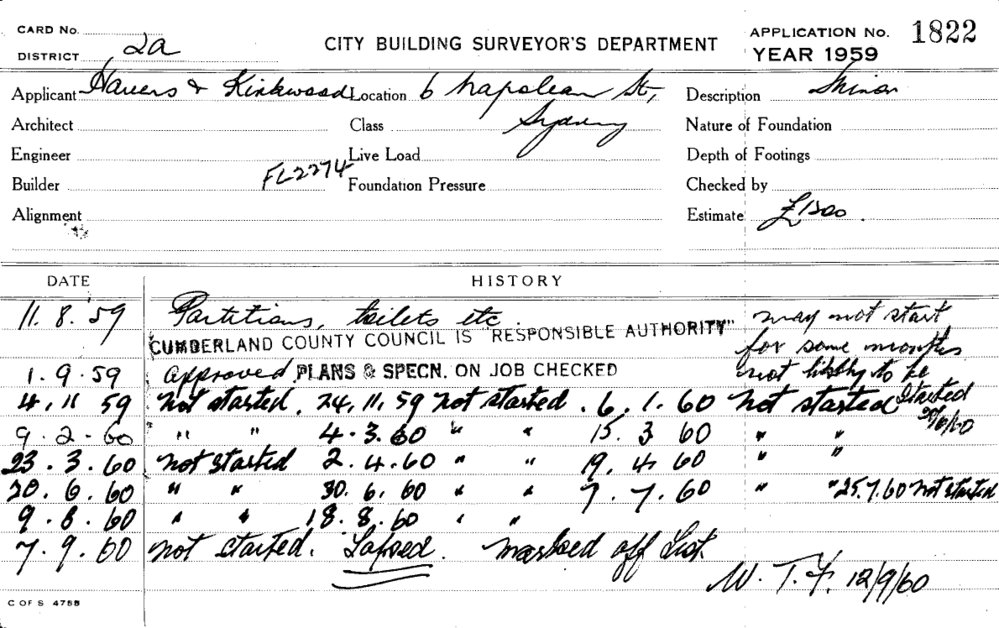 CARD No.
DISTRICT 2a
CITY BUILDING SURVEYOR'S DEPARTMENT
APPLICATION No. 1822
YEAR 1959
Applicant Havers & Kirkwood Location 6 Napolean St, Description Minor
Architect Class Sydney Nature of Foundation
Engineer Live Load Depth of Footings
Builder FL2274 Foundation Pressure Checked by
Alignment Estimate £1500.
DATE HISTORY
11.8.59 Partitions, toilets etc. may not start
CUMBERLAND COUNTY COUNCIL IS "RESPONSIBLE AUTHORITY" for some months
1.9.59 Approved PLANS & SPECN. ON JOB CHECKED not likely to be
started
4.11.59 Not started. 24.11.59 Not started. 6.1.60 Not started
9.2.60 " " 4.3.60 " " 15.3.60 " "
23.3.60 Not started 2.4.60 " " 19.4.60 " "
20.6.60 " " 30.6.60 " " 7.7.60 " " 25.7.60 Not started
9.8.60 " " 18.8.60 " "
7.9.60 Not started. Lapsed. Marked off List.
W.T.F. 12/9/60
C OF S 4788